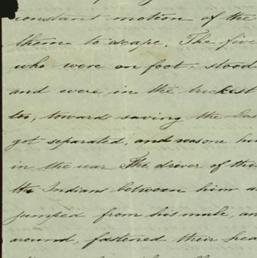 constant motion of the
them to escape. The five
who were on foot, stood
and were in the
too, toward saving the
got separated, and
in the rear. The driver of the
the Indians between him a
jumped from his mule, an
around, fastened their hea